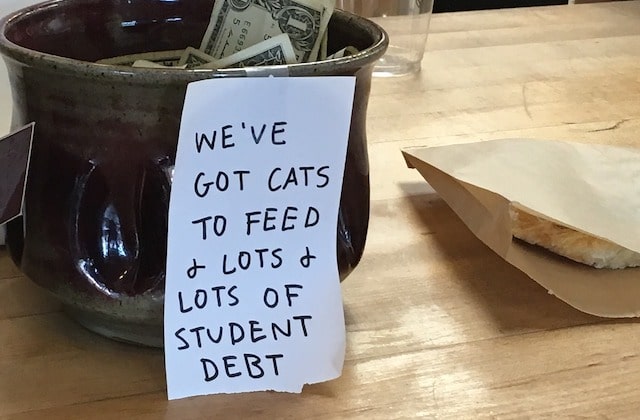 WE'VE
GOT CATS
TO FEED
& LOTS &
LOTS OF
STUDENT
DEBT